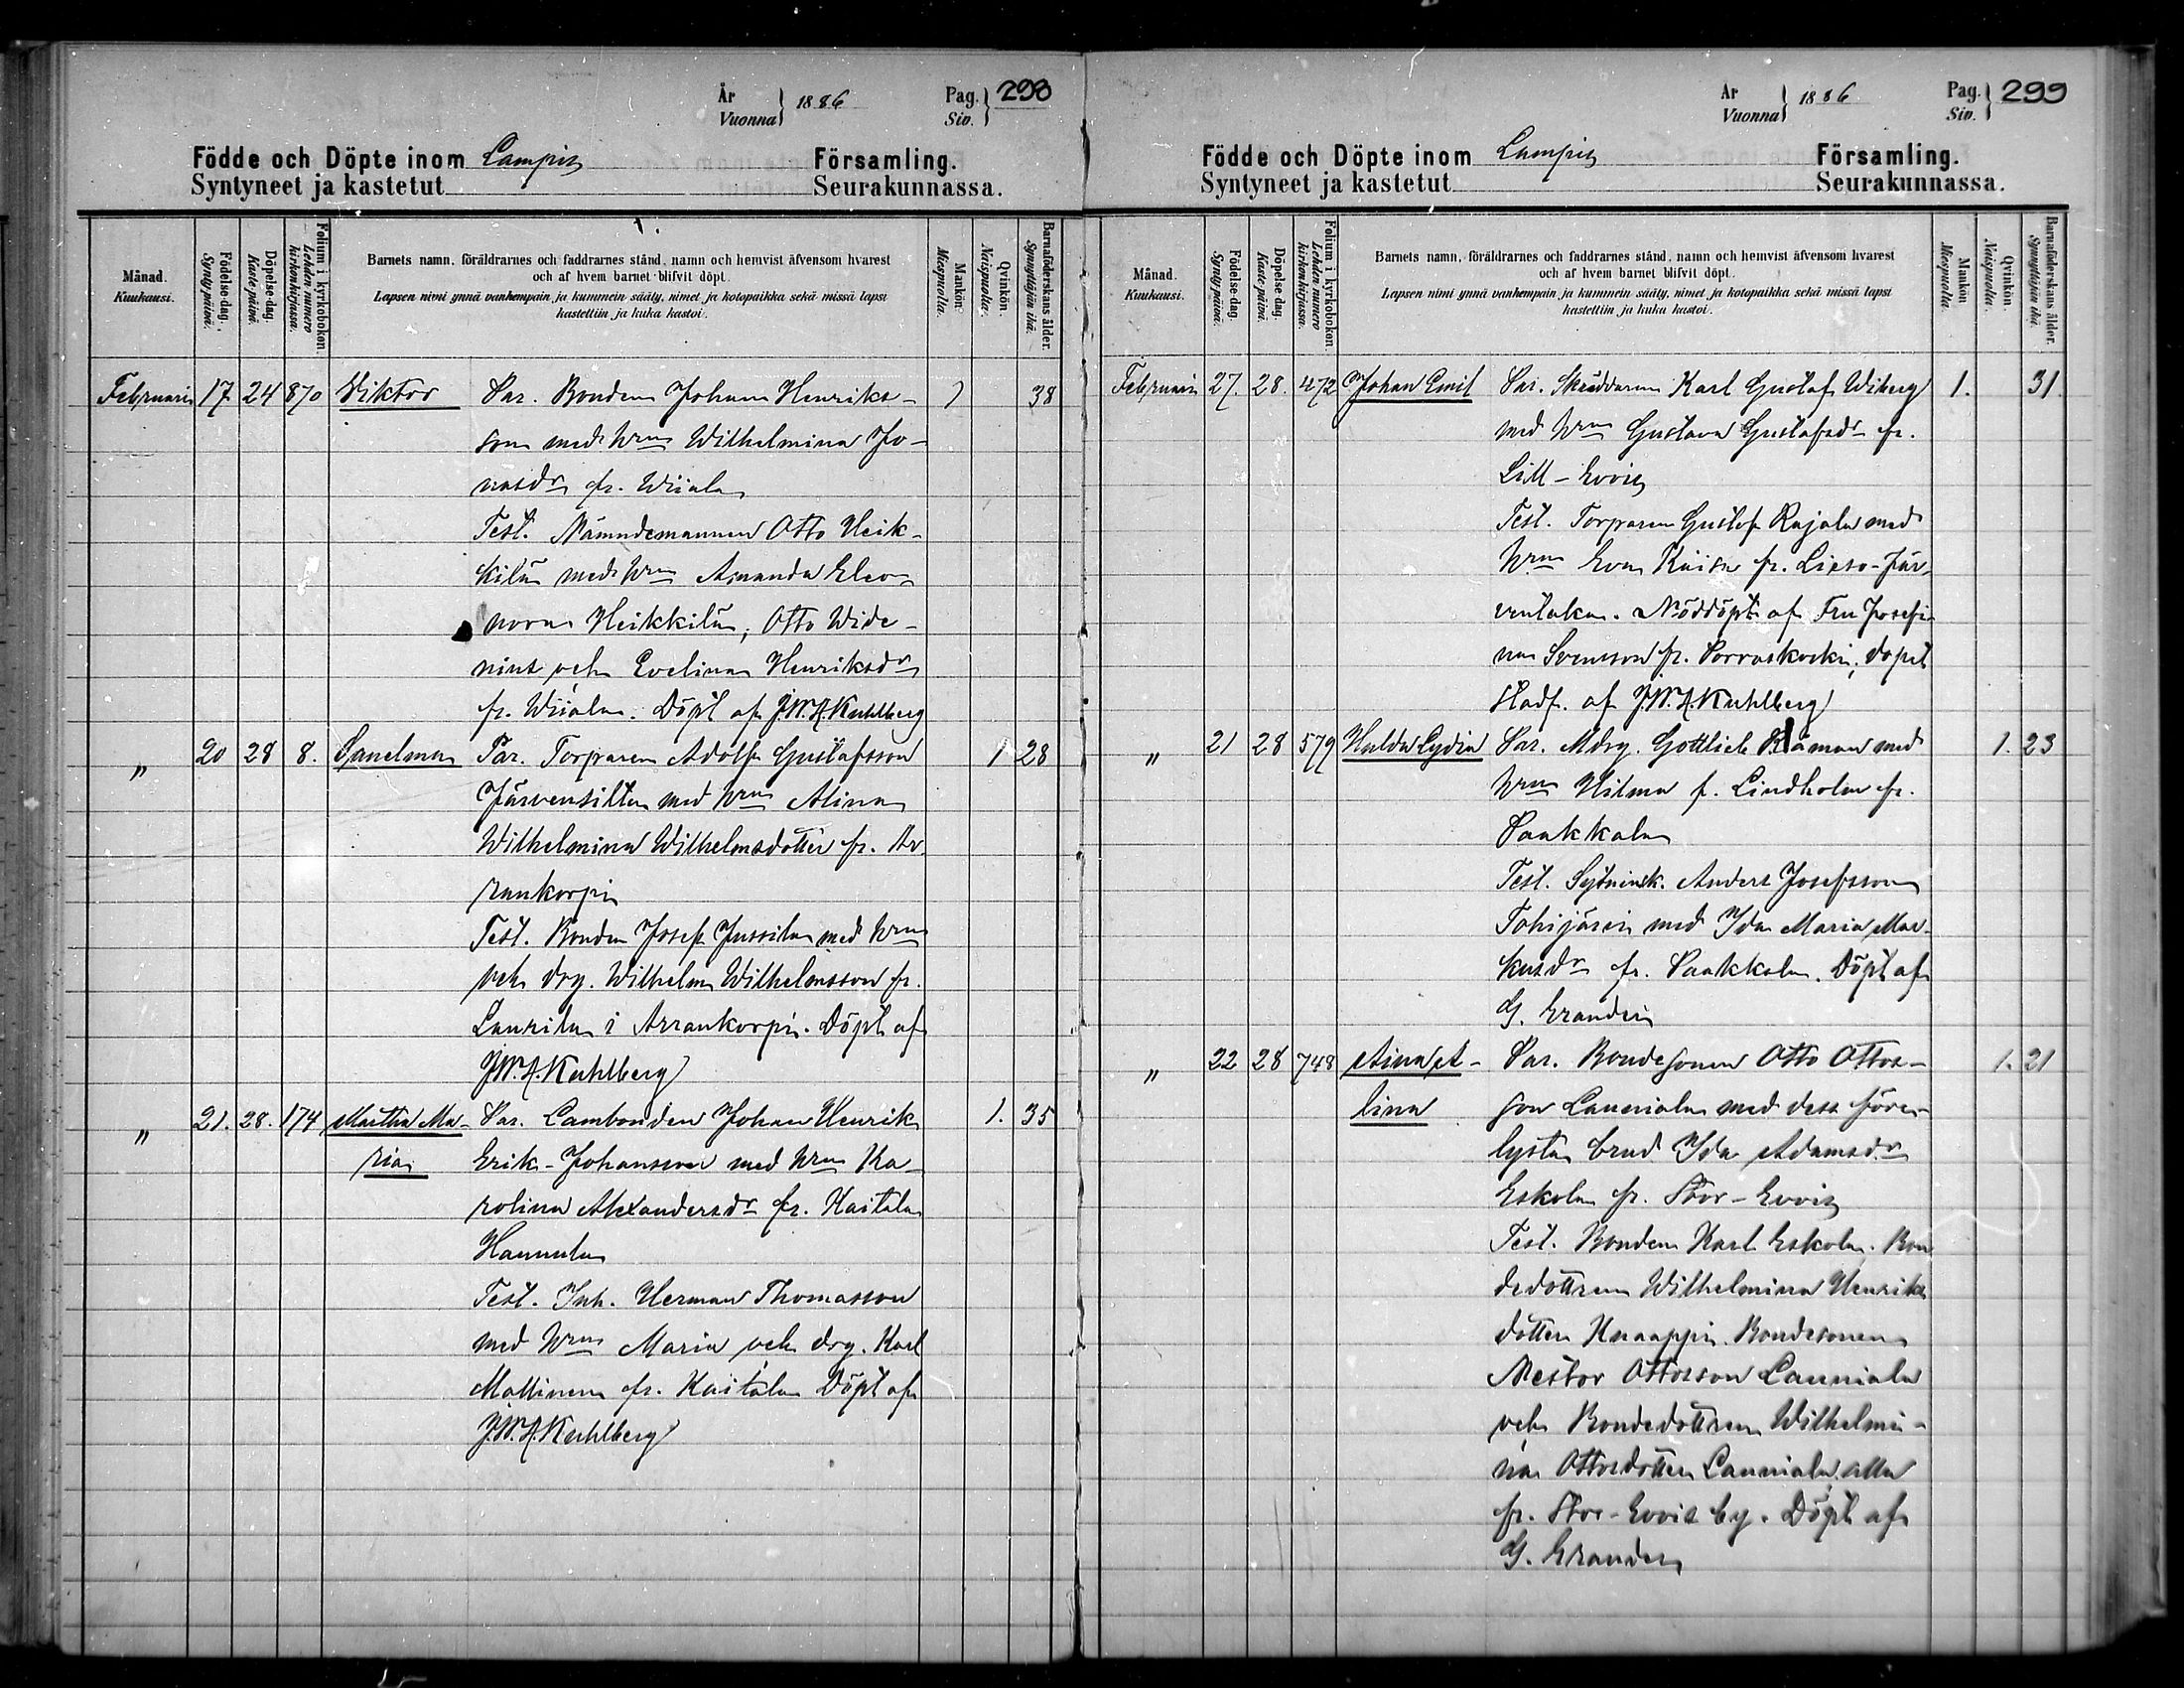 År
Vuonna } 1886
Pag.
Siv. } 298
Födde och Döpte inom Lampis Församling.
Syntyneet ja kastetut Seurakunnassa.
Månad.
Kuukausi.
Födelse-dag.
Synty-päivä.
Döpelse-dag.
Kaste-päivä.
Folium i kyrkoboken.
Lehden numero
kirkonkirjassa.
Barnets namn, föräldrarnes och faddrarnes stånd, namn och hemvist äfvensom hvarest
och af hvem barnet blifvit döpt.
Lapsen nimi ynnä vanhempain ja kummein sääty, nimet ja kotopaikka sekä missä lapsi
kastettiin ja kuka kastoi.
Mankön.
Miespuolta.
Qvinkön.
Naispuolta.
Barnaföderskans ålder.
Synnyttäjän ikä.
Februari 17 24 870 Viktor Par. Bonden Johan Henriks- 1 38
son med hru Wilhelmina Jo-
nasdr fr. Wiiala
Test. Nämndemannen Otto Heik-
kilä med hru Amanda Eleo
nora Heikkilä, Otto Wide-
nius och Evelina Henriksdr
fr. Wiiala. Döpt af J.W.A. Kuhlberg
" 20 28 8. Sanelma Par. Torparen Adolf Gustafsson 1 28
Järvensilta med hru Alina
Wilhelmina Wilhelmsdotter fr. Ar-
rankorpi
Test. Bonden Josef Jussila med hru
och drg. Wilhelm Wilhelmsson fr.
Laurila i Arrankorpi. Döpt af
J.W.A. Kuhlberg
" 21. 28. 174 Martha Ma- Par. Lambonden Johan Henrik 1. 35
ria Erik-Johansson med hru Ka
rolina Alexandersdr fr. Kaitala
Hannula
Test. Inh. Herman Thomasson
med hru Maria och drg. Karl
Mattinen fr. Kaitala Döpt af
J.W.A. Kuhlberg
År
Vuonna } 1886
Pag.
Siv. } 299
Födde och Döpte inom Lampis Församling.
Syntyneet ja kastetut Seurakunnassa.
Månad.
Kuukausi.
Födelse-dag.
Synty-päivä.
Döpelse dag.
Kaste-päivä.
Folium i kyrkoboken.
Lehden numero
kirkonkirjassa.
Barnets namn, föräldrarnes och faddrarnes stånd, namn och hemvist äfvensom hvarest
och af hvem barnet blifvit döpt.
Lapsen nimi ynnä vanhempain ja kummein sääty, nimet ja kotopaikka sekä missä lapsi
kastettiin ja kuka kastoi.
Mankön
Miespuolta.
Qvinkön.
Naispuolta.
Barnaföderskans ålder.
Synnyttäjän ikä.
Februari 27. 28. 472 Johan Emil Par. Skräddaren Karl Gustaf Wiberg 1. 31.
med hru Gustava Gustafsdr fr.
Lill-Evois
Test. Torparen Gustaf Rajala med
hru Eva Kaisa fr. Lieso-Jär-
ventaka. Nöddöpt af Fru Josefi-
na Svensson fr. Porraskoski, döpet
stadf. af J.W.A. Kuhlberg
" 21 28 579 Hulda Lydia Par. Mdrg. Gottlieb Klåman med 1. 23
hru Hilma f. Lindholm fr.
Paakkola
Test. Anders Josefsson
Tohijärvi med Ida Maria Mar-
kusdr fr. Paakkola. Döpt af
G. Erander
" 22 28 748 Aina A- Par. Bondesonen Otto Ottos- 1. 21
lina son Launiala med dess före-
lysta brud Ida Adamsdr
Eskola fr. Stor-Evois
Test. Bonden Karl Eskola. Bon
dedottren Wilhelmina Henriks
dotter Knaappi. Bondesonen
Nestor Ottosson Launiala
och Bondedottren Wilhelmi-
na Ottosdotter Launiala, alla
fr. Stor-Evois by. Döpt af
G. Erander